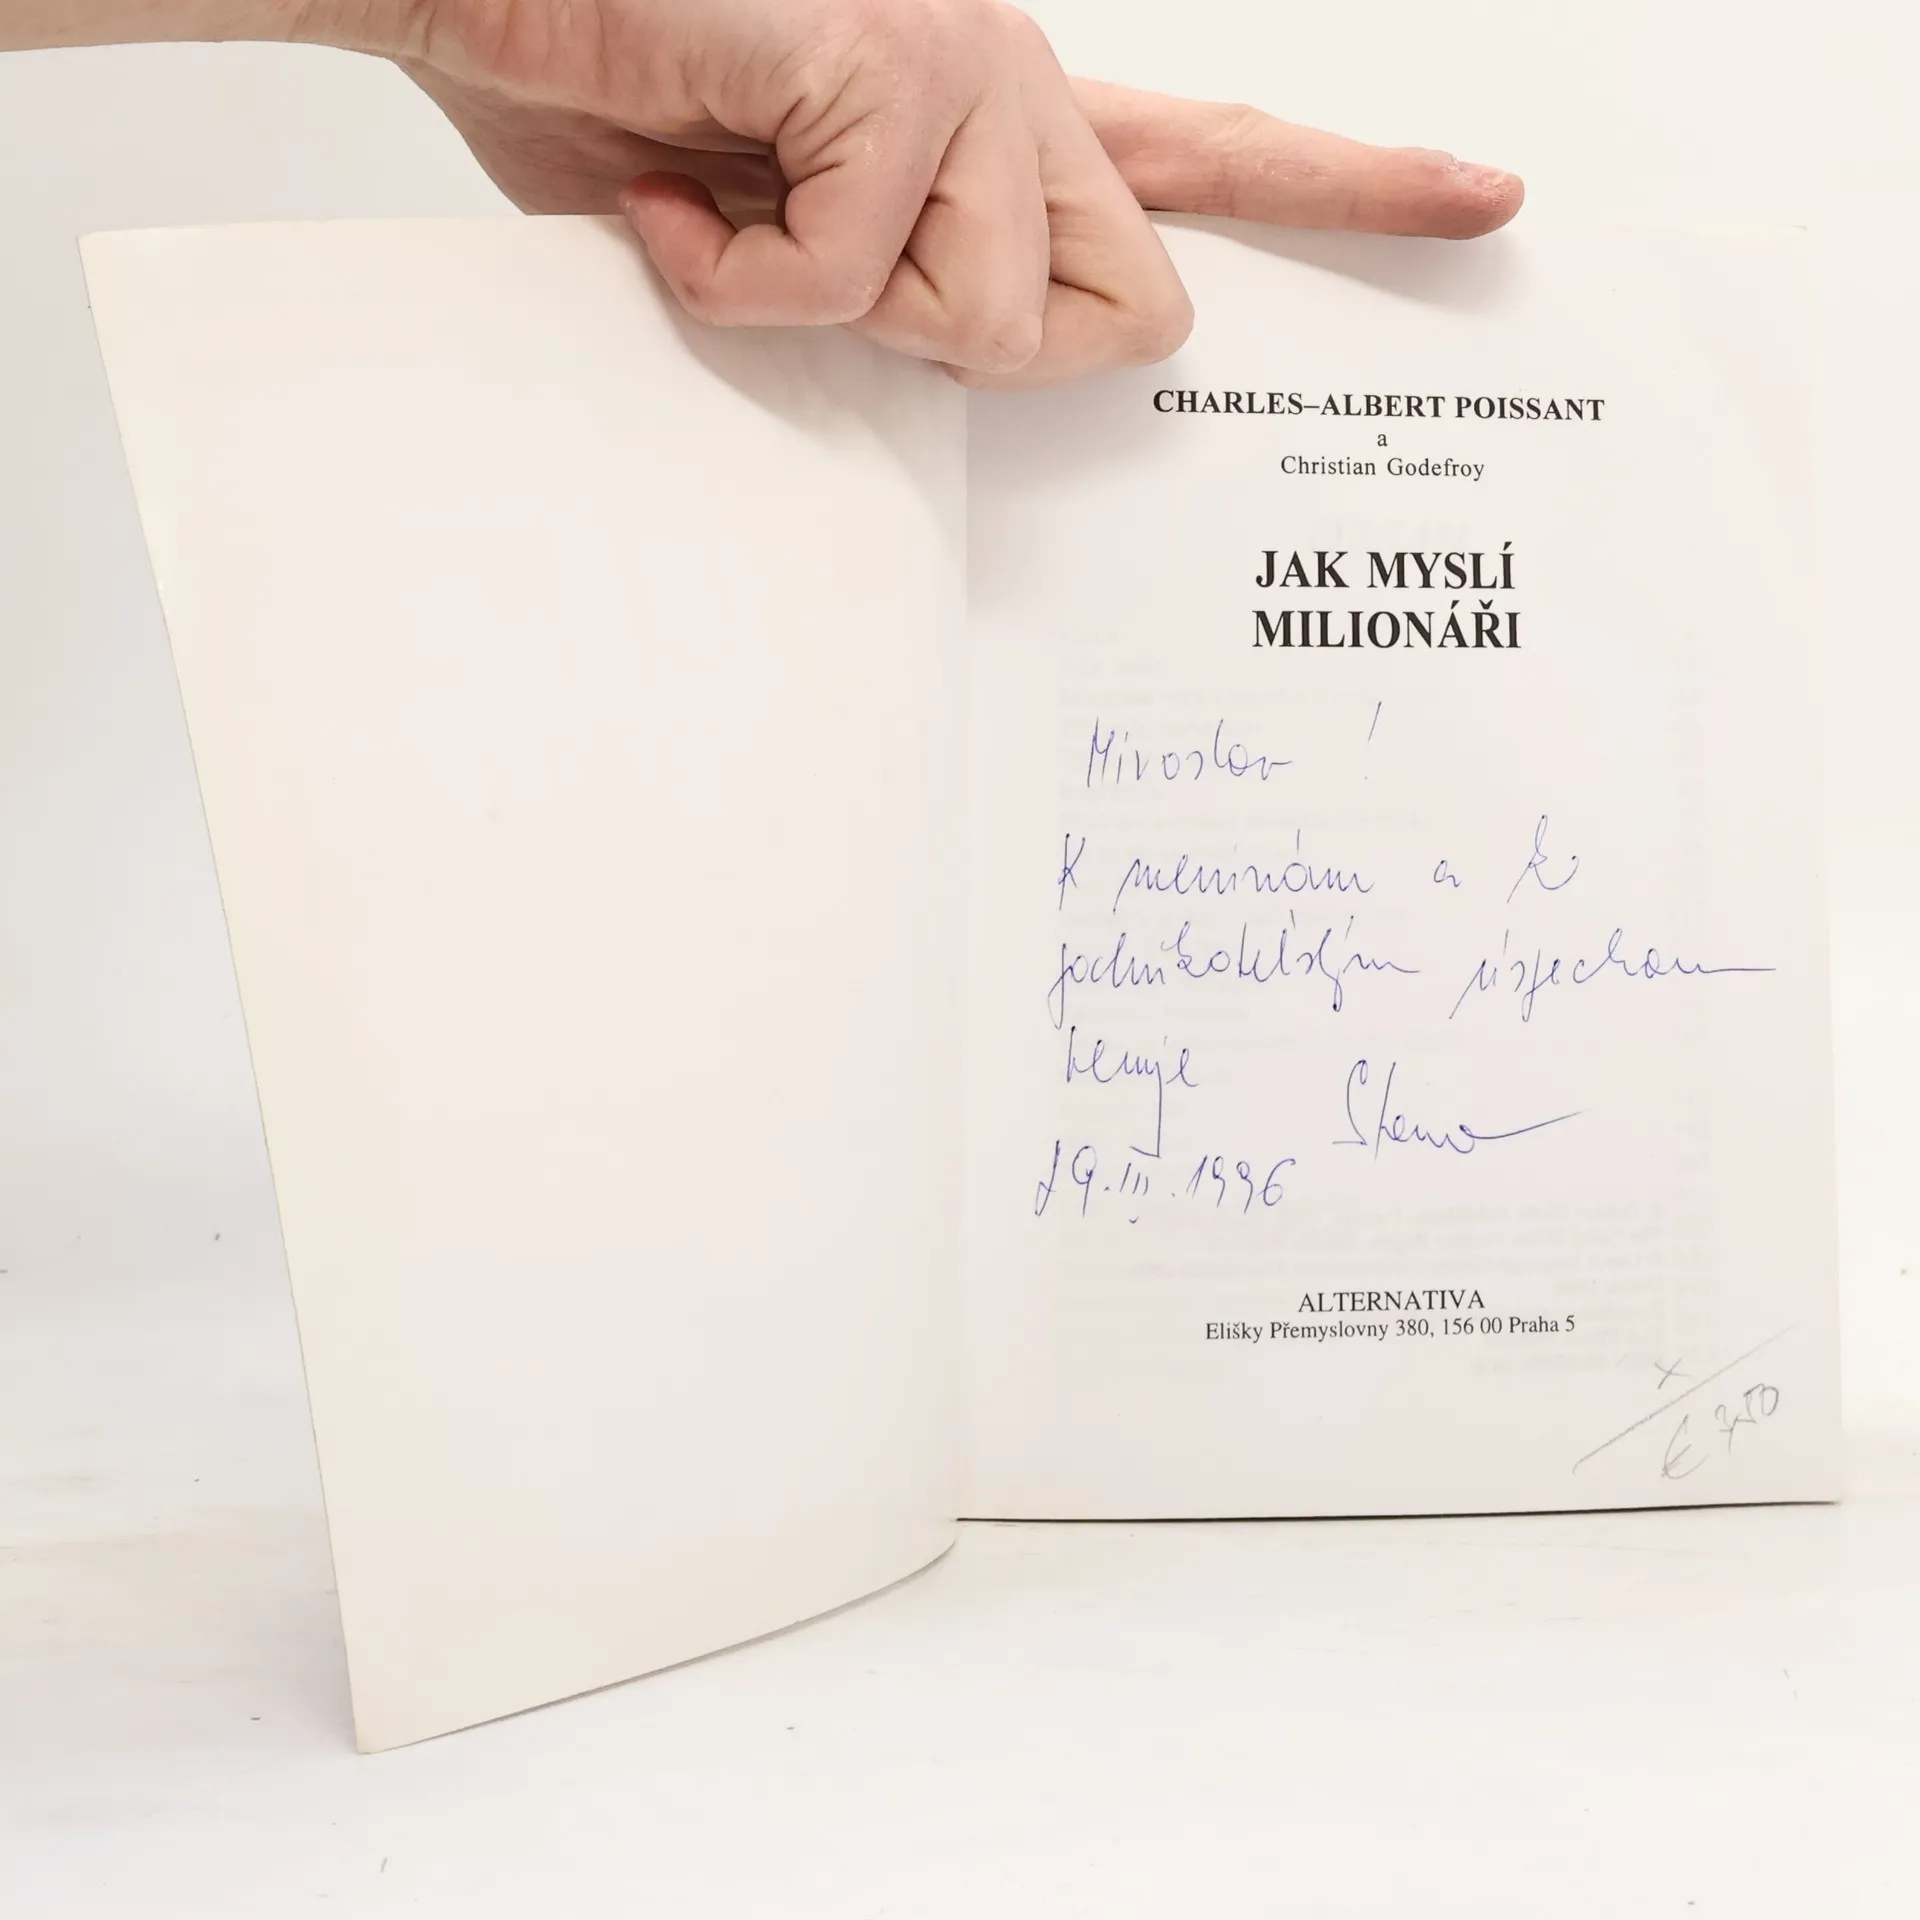 CHARLES–ALBERT POISSANT
a
Christian Godefroy
JAK MYSLÍ
MILIONÁŘI
Miroslav !
K meninám a k
podnikatelským úspechom
venuje
29.III.1996
ALTERNATIVA
Elišky Přemyslovny 380, 156 00 Praha 5
x
€ 3,50